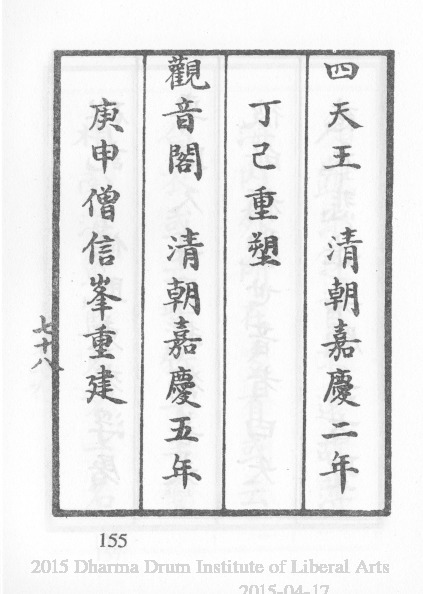 四天王 清朝嘉慶二年
丁己重塑
觀音閣 清朝嘉慶五年
庚申僧信峯重建
七十八
155
2015 Dharma Drum Institute of Liberal Arts
2015-04-17